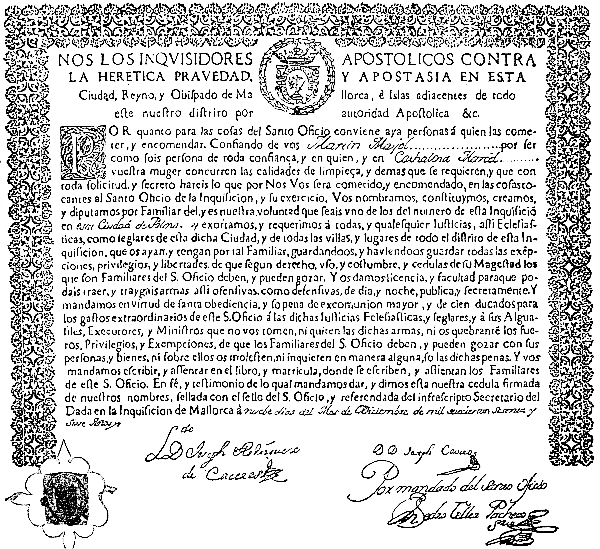 NOS LOS INQVISIDORES APOSTOLICOS CONTRA
LA HERETICA PRAVEDAD, Y APOSTASIA EN ESTA
Ciudad, Reyno, y Obispado de Mallorca, è Islas adiacentes de todo
este nuestro distrito por autoridad Apostolica &c.
POR quanto para las cosas del Santo Oficio conviene aya personas à quien las come-
ter, y encomendar. Confiando de vos Martin Mayol por ser
como sois persona de toda confiança, y en quien, y en Cathalina
vuestra muger concurren las calidades de limpieça, y demas que se requieren, y que con
toda solicitud, y secreto hareis lo que por Nos Vos serà cometido, y encomendado, en las cosas to-
cantes al Santo Oficio de la Inquisicion, y su exercicio. Vos nombramos, constituymos, creamos,
y diputamos por Familiar del, y es nuestra voluntad que seais vno de los del numero de esta Inquisiciō
en y exortamos, y requerimos à todas, y qualesquier Iusticias, assi Eclesias-
ticas, como seglares de esta dicha Ciudad, y de todas las villas, y lugares de todo el distrito de esta In-
quisicion, que os ayan, y tengan por tal Familiar, guardandoos, y haviendoos guardar todas las exēp-
ciones, privilegios, y libertades, de que segun derecho, vso, y costumbre, y cedulas de su Magestad los
que son Familiares del S. Oficio deben, y pueden gozar. Y os damos licencia, y facultad para que po-
dais traer, y traygais armas assi ofensivas, como defensivas, de dia, y noche, publica, y secretamente. Y
mandamos en virtud de santa obediencia, y so pena de excomunion mayor, y de cien ducados para
los gastos extraordinarios de este S. Oficio à las dichas Iusticias Eclesiasticas, y seglares, y à sus Algua-
ziles, Executores, y Ministros que no vos tomen, ni quiten las dichas armas, ni os quebranté los fue-
ros, Privilegios, y Exempciones, de que los Familiares del S. Oficio deben, y pueden gozar con sus
personas, y bienes, ni sobre ellos os molesten, ni inquieten en manera alguna, so las dichas penas. Y vos
mandamos escribir, y assentar en el libro, y matricula, donde se escriben, y assientan los Familiares
de este S. Oficio. En fé, y testimonio de lo qual mandamos dar, y dimos esta nuestra cedula firmada
de nuestros nombres, sellada con el sello del S. Oficio, y referendada del infrascripto Secretario del
Dada en la Inquisicion de Mallorca à nueve dias del Mes de Diziembre de mil
Por mandado del Santo Oficio
Pedro Tellez Pacheco